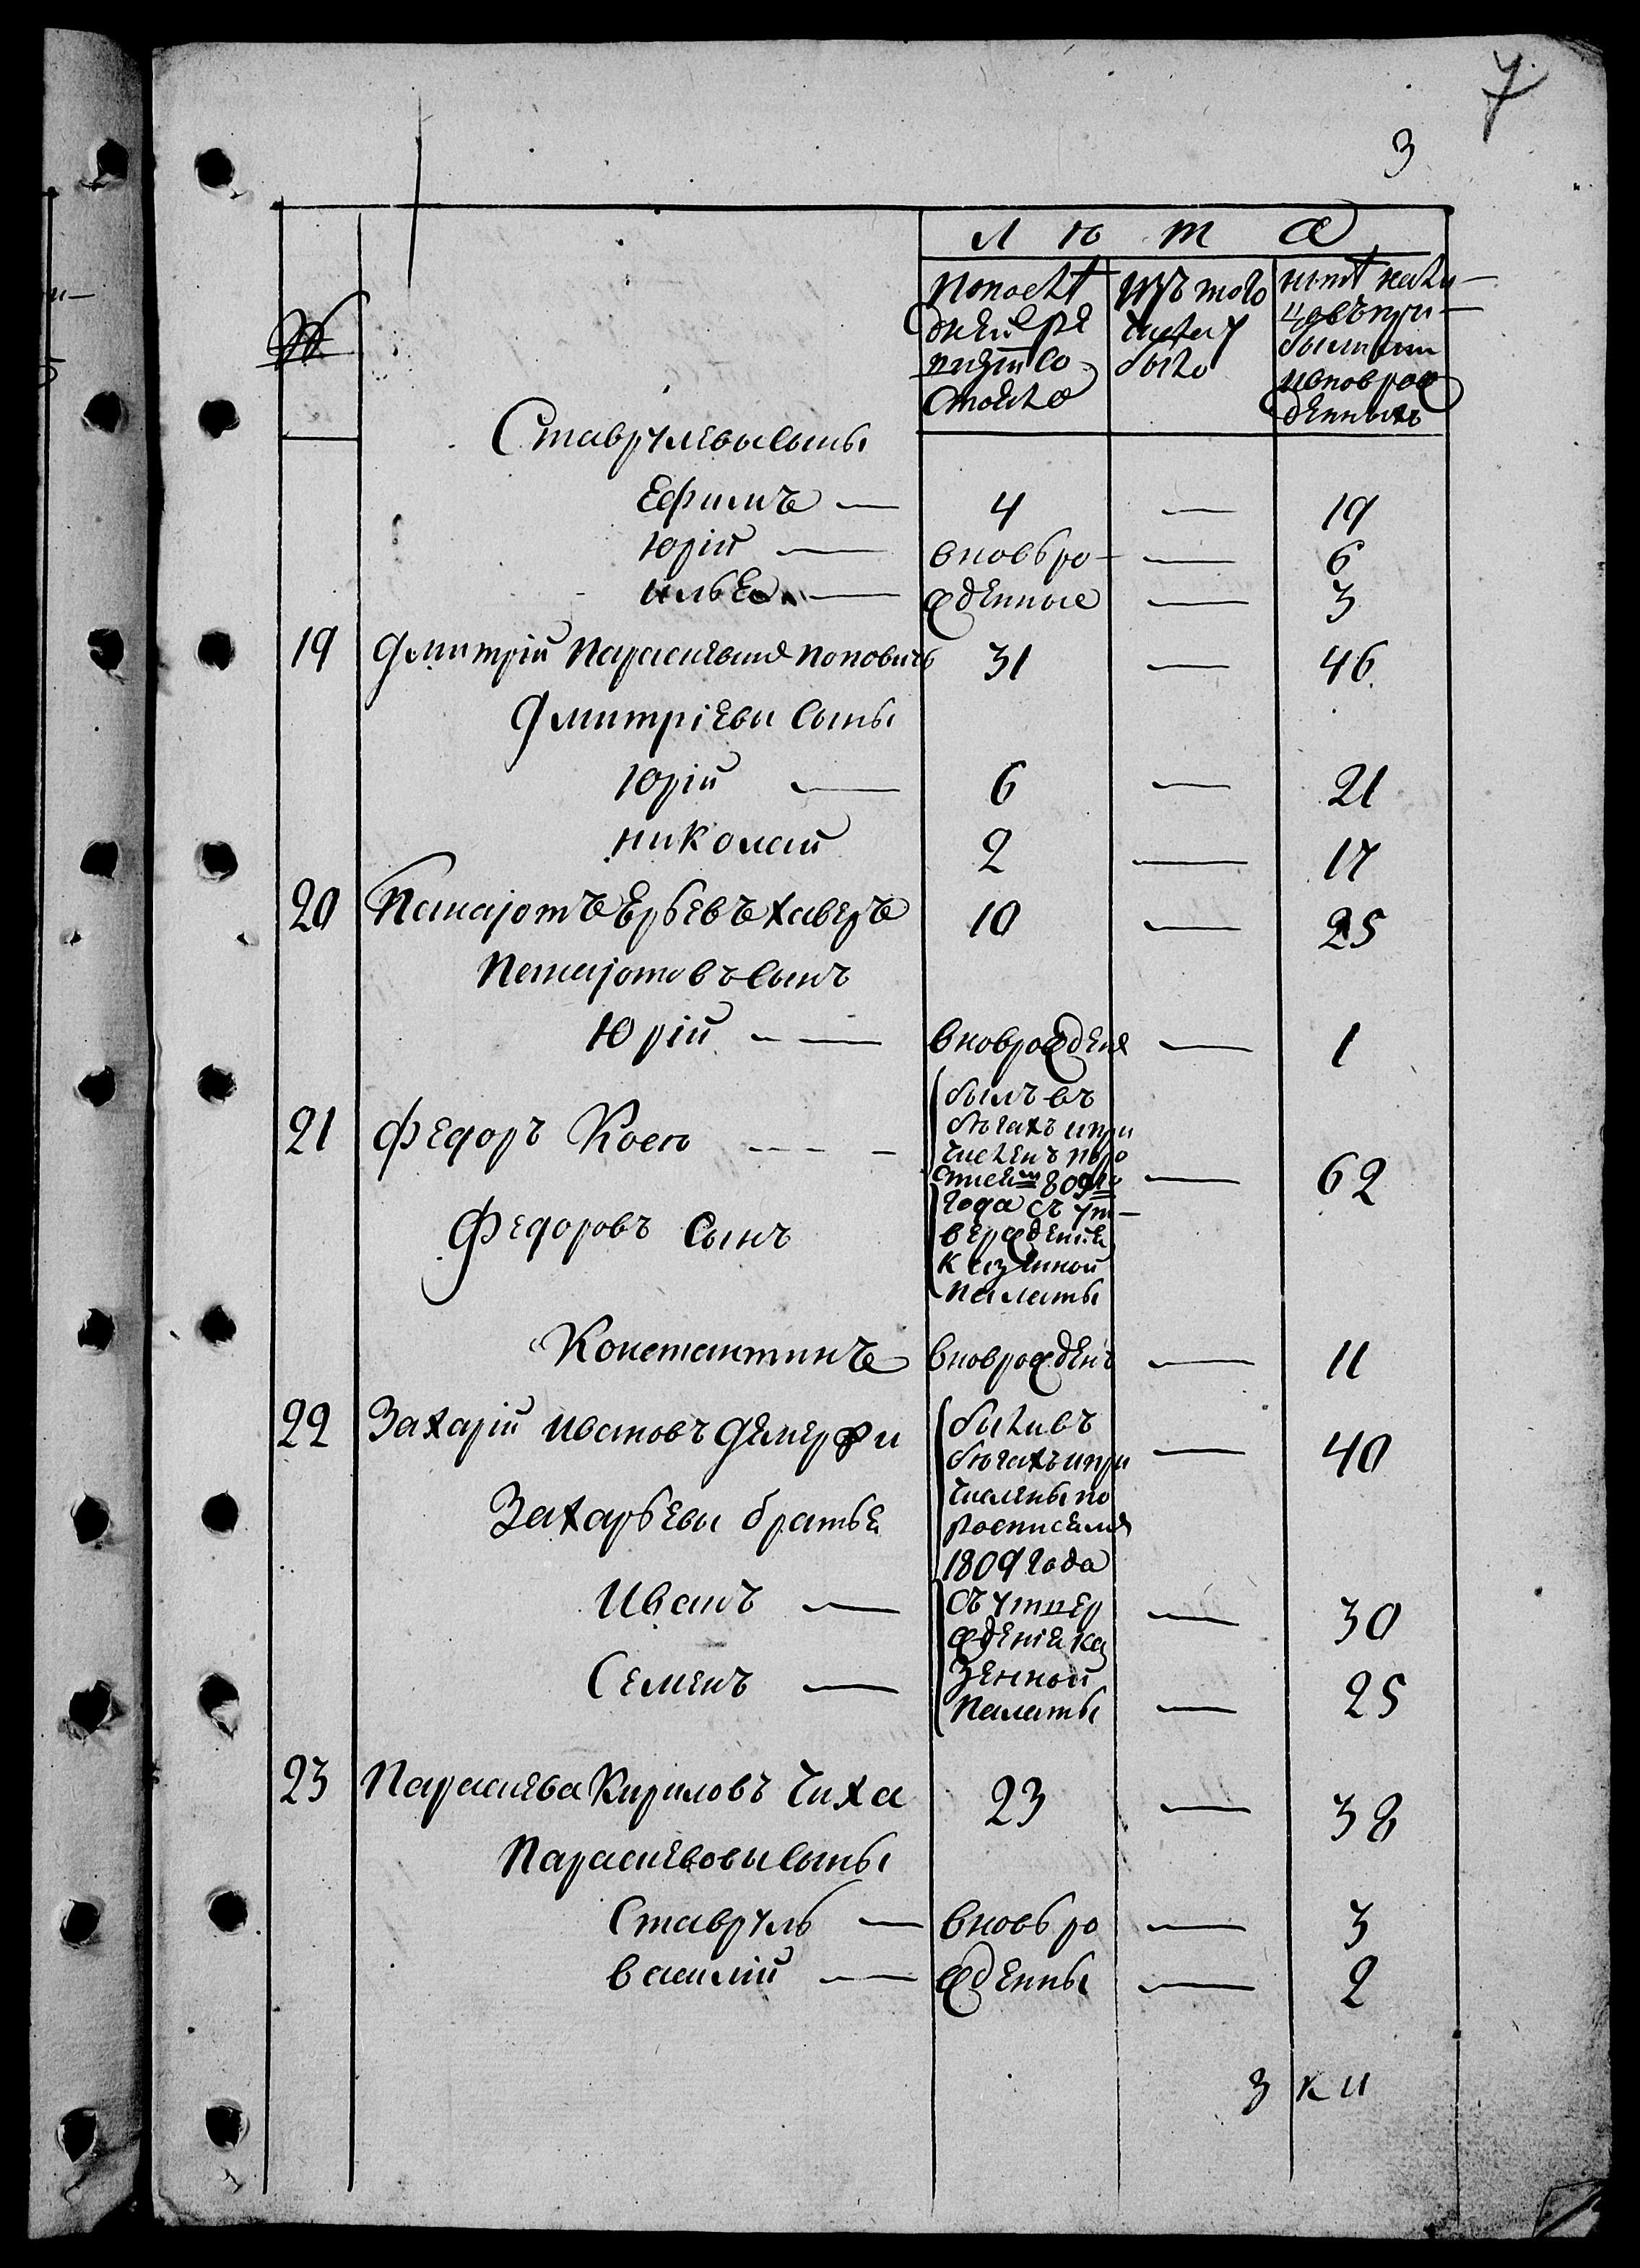 7
3
№
Л ѣ т а
По послѣ
дней ре
визіи со
стояло
Изъ того
числа
было
Нынѣ на ли
цо въ при
былыми
и новорож
денныхъ
Ставрулевы сыны
Ефимъ — 4 — 19
Юрій — вновь ро — 6
Илья — жденные — 3
19 Дмитрій Параскева Поповичъ 31 — 46
Дмитріевы сыны
Юрій — 6 — 21
Николай 2 — 17
20 Панаіотъ Юрьевъ Хаверъ 10 — 25
Панаіотовъ сынъ
Юрій — вноврожденъ — 1
21 Федоръ Косѣ — — — 62
былъ въ
бѣгахъ и при
численъ по ро
списям 809го
года съ ут
вержденія
казенной
палаты
Федоровъ сынъ
Константинъ вноврожденъ — 11
22 Захарій Ивановъ Демерджи — 40
были въ
бѣгахъ и при
числены по
росписямъ
1809 года
съ утвер
жденія ка
зенной
палаты
Захарьевы братья
Иванъ — — 30
Семенъ — — 25
23 Параскева Кириловъ Чиха 23 — 38
Параскевовы сыны
Ставруль — вновь ро — 3
Василий — ждены — 2
3 ки